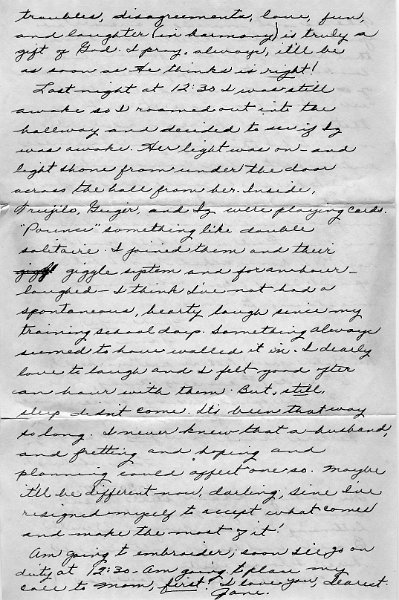 troubles, disagreements, love, fun,
and laughter (in harmony) is truly a
gift of God. I pray, always, it'll be
as soon as He thinks is right!
Last night at 12:30 I was still
awake so I roamed out into the
hallway and decided to see if Iz
was awake. Her light was on - and
light shone from under the door
across the hall from her. Inside,
Trujilo, Geiger, and Iz were playing cards.
"Pounce" something like double
solitaire. I joined them and their
giggle system and for an hour -
laughed - I think I've not had a
spontaneous, hearty laugh since my
training school days. Something always
seemed to have walled it in. I dearly
love to laugh and I felt good after
an hour with them. But, still,
sleep didn't come. It's been that way
so long. I never knew that a husband,
and fretting and hoping and
planning could affect one so. Maybe
it'll be different now, darling, since I've
resigned myself to accept what comes
and make the most of it!
Am going to embroider; soon I'll go on
duty at 12:30 - Am going to place my
call to Mom, first. I love you, dearest
Jane.